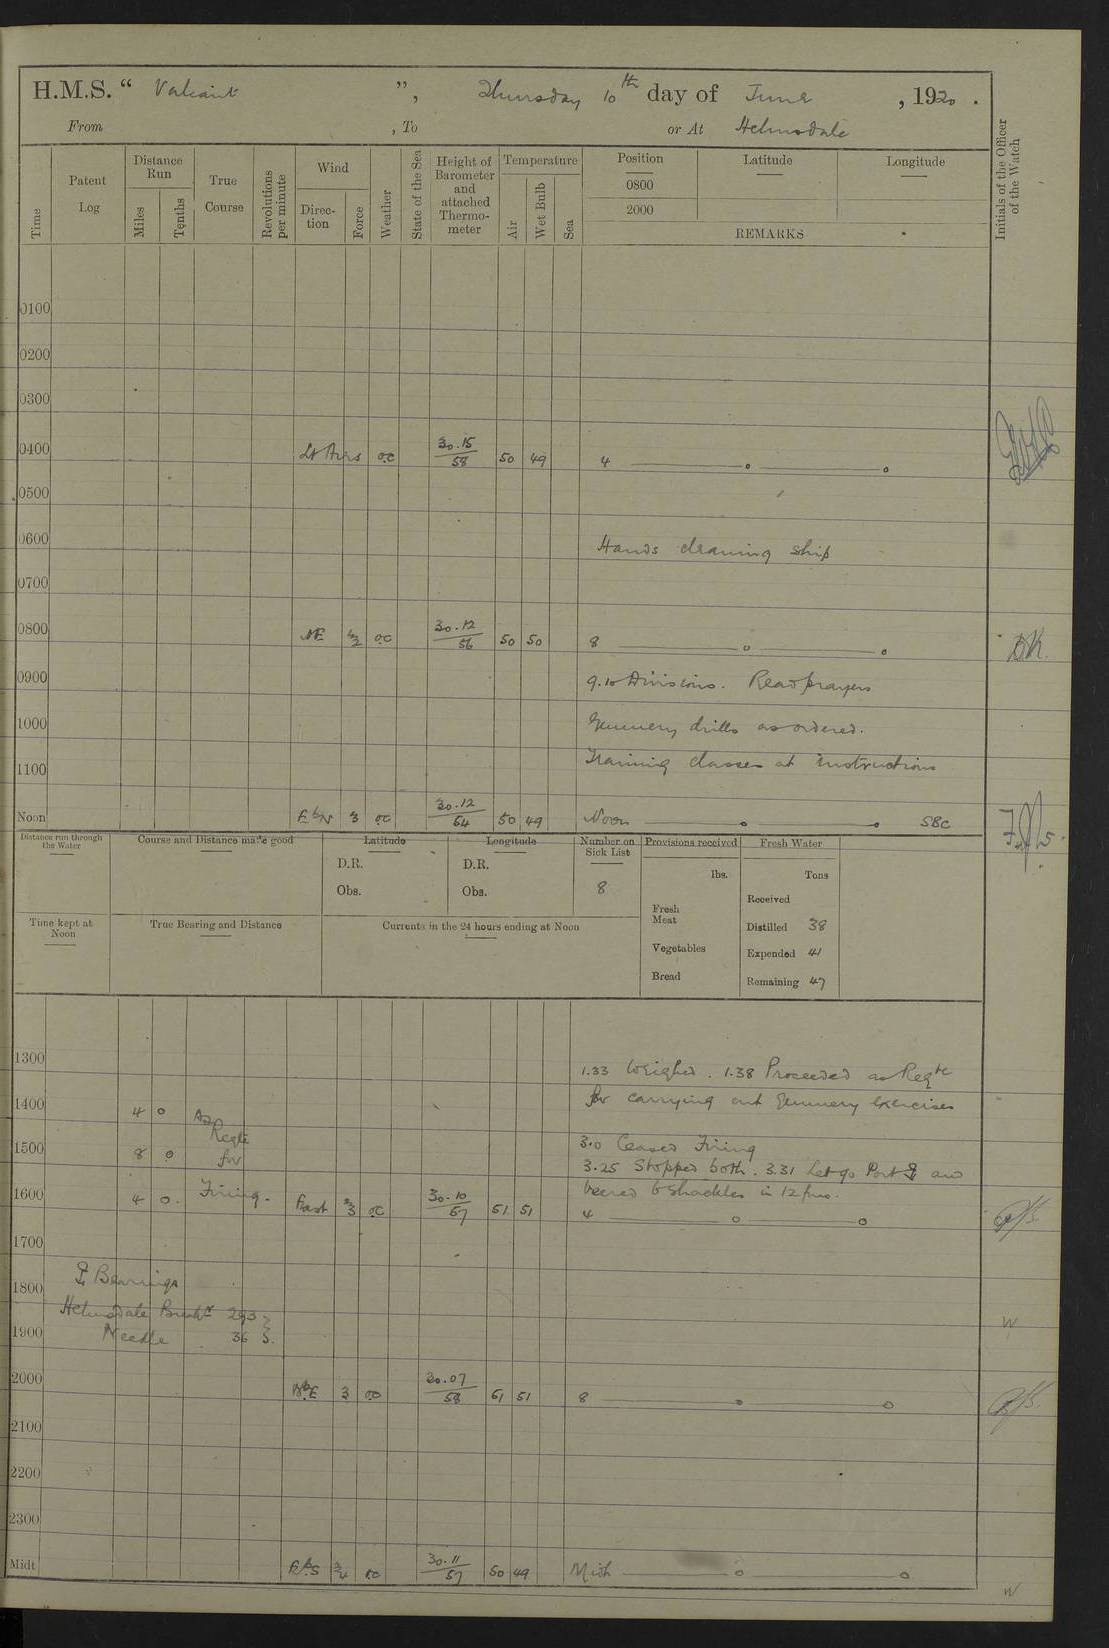 H.M.S. “ Valiant ”, Thursday 10th day of June , 1920 .
From , To or At Helmsdale
Time
Patent Log
Distance Run
Miles
Tenths
True Course
Revolutions per minute
Wind
Direc-tion
Force
Weather
State of the Sea
Height of Barometer and attached Thermo-meter
Temperature
Air
Wet Bulb
Sea
Position
0800
2000
Latitude
Longitude
REMARKS
Initials of the Officer of the Watch
0100
0200
0300
0400 Lt Airs oc 30.15/58 50 49 4 ——o——o
0500
0600 Hands cleaning ship
0700
0800 NE 2 oc 30.12/56 50 50 8 ——o——o DK.
0900 9.10 Divisions. Read prayers
1000 Gunnery drills as ordered.
1100 Training classes at instructions
Noon EbN 3 oc 30.12/64 50 49 Noon ——o——o SBC
Distance run through the Water
Course and Distance made good
Latitude
D.R.
Obs.
Longitude
D.R.
Obs.
Number on Sick List
8
Provisions received
lbs.
Fresh Meat
Vegetables
Bread
Fresh Water
Tons
Received
Distilled 38
Expended 41
Remaining 47
Time kept at Noon
True Bearing and Distance
Currents in the 24 hours ending at Noon
1300 1.33 Weighed. 1.38 Proceeded as Reqte
1400 4 0 for carrying out Gunnery Exercises
As Reqte for Firing.
1500 8 0 3.0 Ceased Firing
3.25 Stopped both. 3.31 Let go Port ⚓ and
1600 4 0 East 2/3 oc 30.10/57 51 51 veered 6 shackles in 12 fms.
4 ——o——o
1700
⚓ Bearings
1800
Helmsdale Breakr 293
1900 Needle 36
2000 3 oc 30.07/58 51 51 8 ——o——o
2100
2200
2300
Midt EbS 3/4 oc 30.11/57 50 49 Midt ——o——o